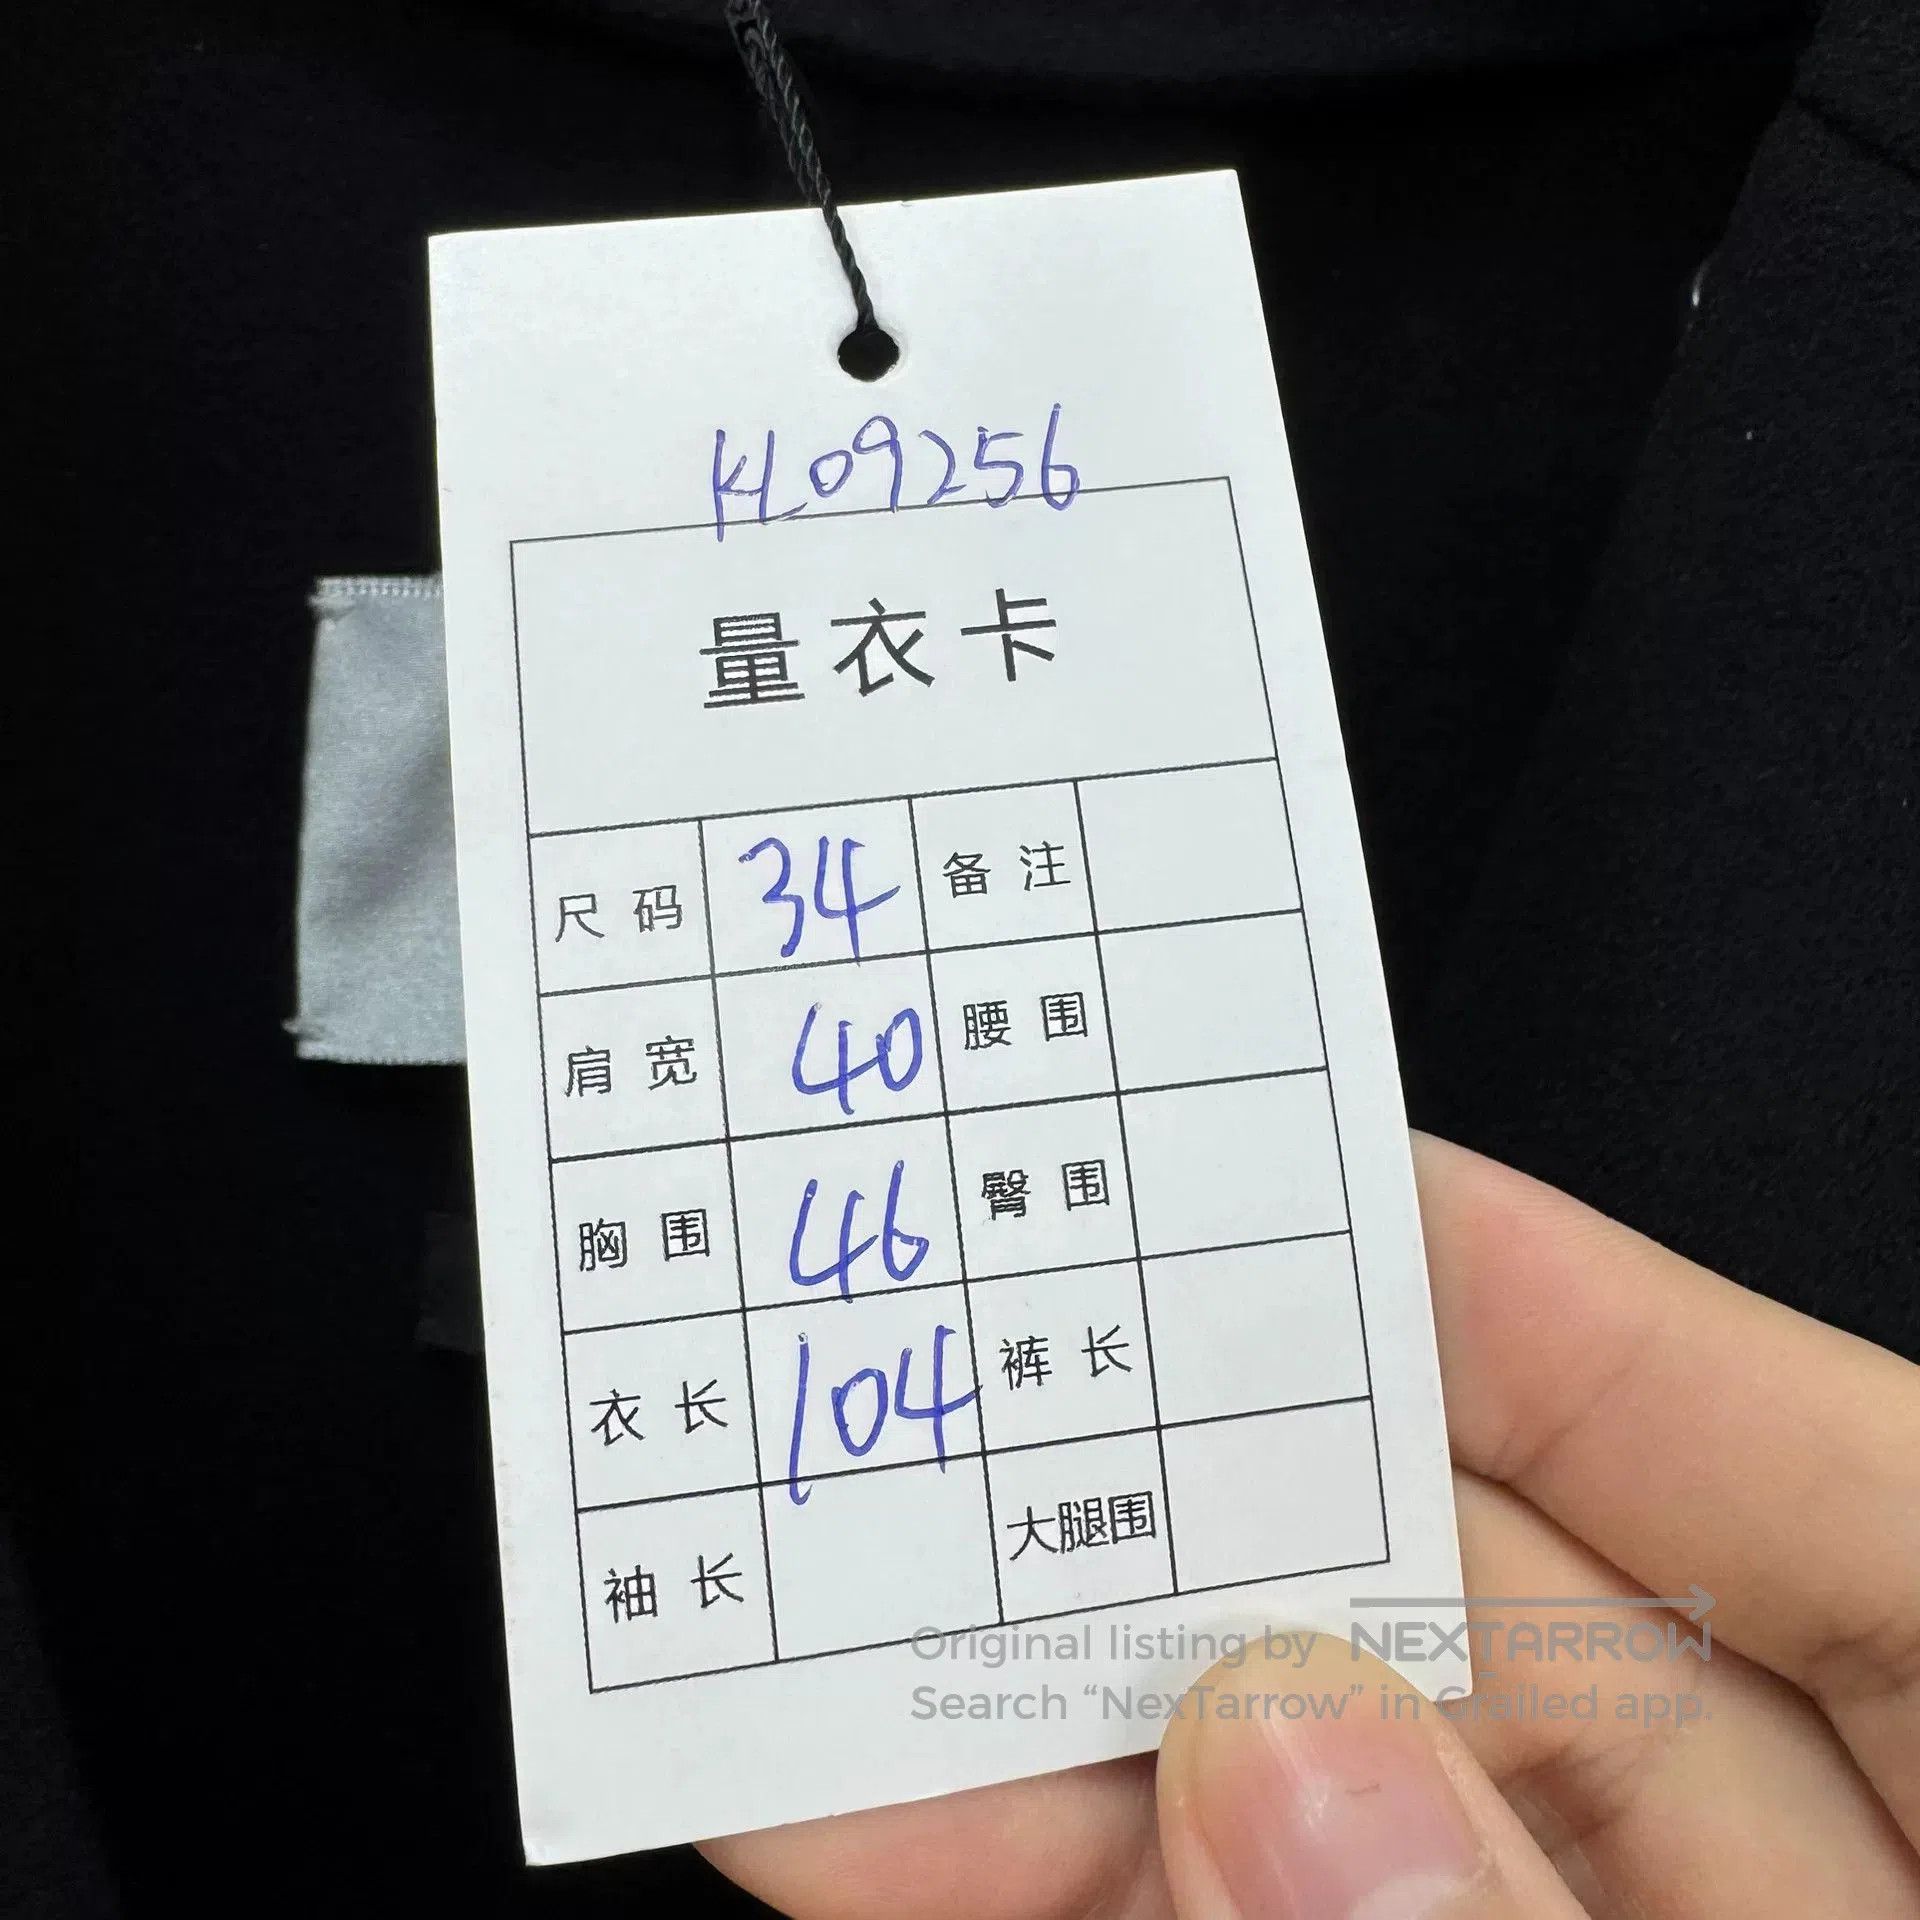 KL09256
量衣卡
尺码 34 备注
肩宽 40 腰围
胸围 46 臀围
衣长 104 裤长
袖长 大腿围
Original listing by NEXTARROW
Search “NexTarrow” in Grailed app.